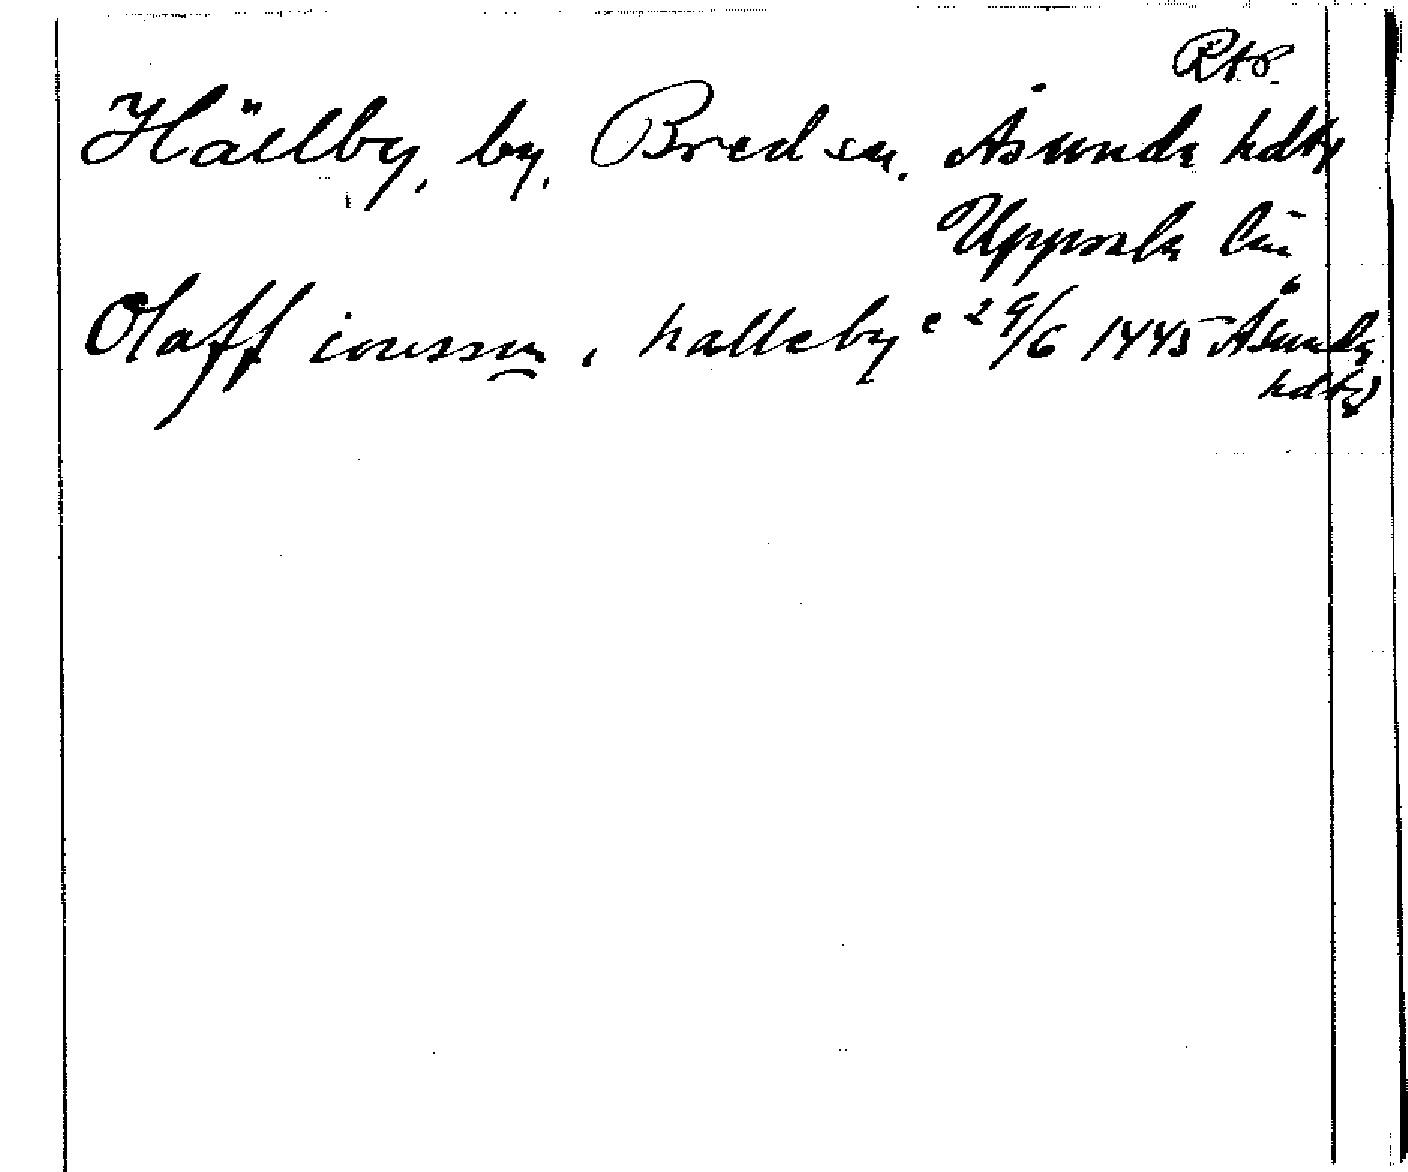 Hällby, by, Bred sn. Åsunda hdrg
Uppsala län
Olaff ionsson, halleby c 29/6 1445 Åsunda
hdrg